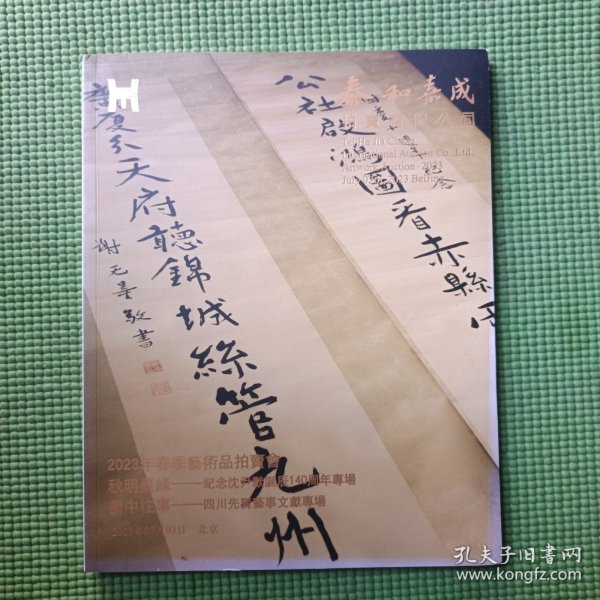 泰和嘉成
拍賣有限公司
Tai He Jia Cheng
International Auction Co.,Ltd.
Artwork Auction·2023
2023 Beijing
公社啟鴻圖看赤縣
慶天府聽錦城絲管
九州
謝无量敬書
2023年春季藝術品拍賣會
秋明墨緣——紀念沈尹默誕辰140周年專場
蜀中往事——四川先賢藝事文獻專場
2023年07月03日·北京
孔夫子旧书网
www.kongfz.com